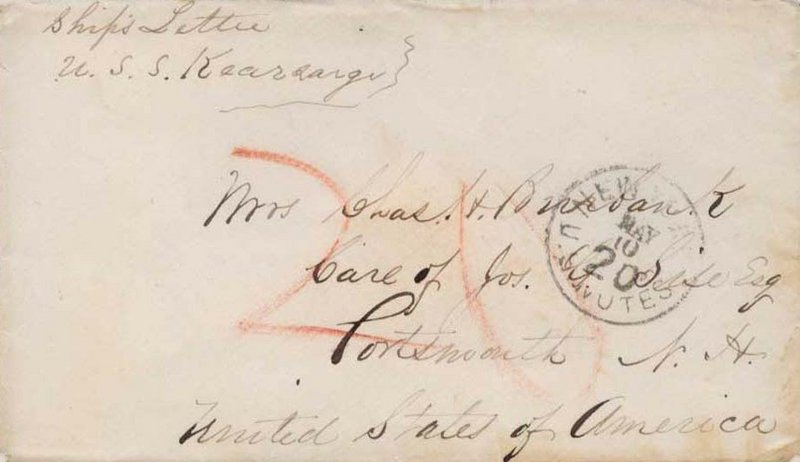 Ship's Letter
U. S. S. Kearsarge
20
Mrs Chas. H. Burbank
Care of Jos.
Esq
Portsmouth N. H.
United States of America
NEW
MAY
10
20
U.S. NOTES